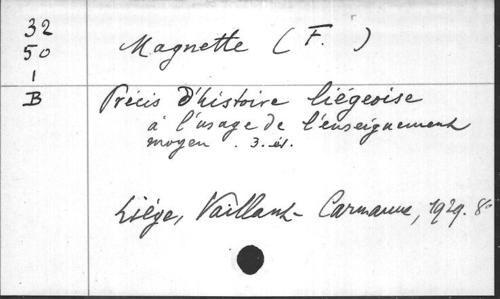 32
50
1
B
Magnette (F. )
Précis d'histoire liégeoise
à l'usage de l'enseignement
moyen . 3. éd.
Liége, Vaillant-Carmanne, 1929. 8°